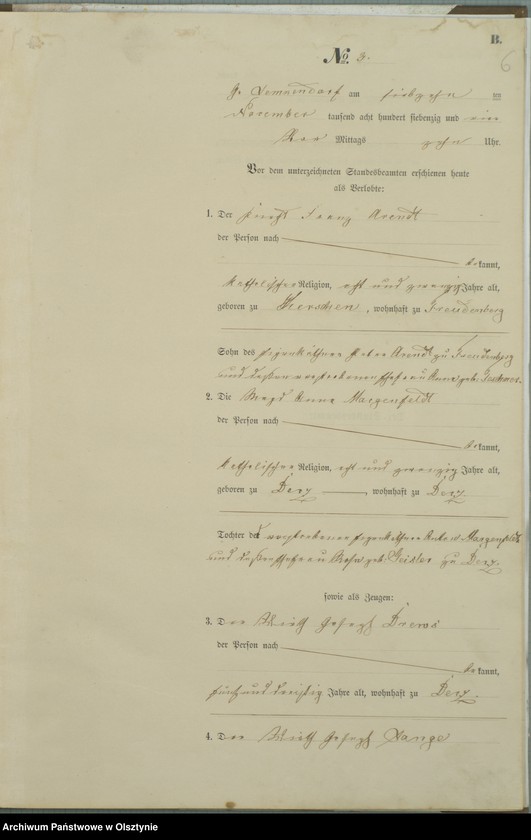 B.
6
No. 3.
am siebzehn ten
November tausend acht hundert siebenzig und
Vor Mittags zehn Uhr.
Vor dem unterzeichneten Standesbeamten erschienen heute
als Verlobte:
1. Der Knecht Franz Arendt
der Person nach
bekannt,
katholischer Religion, acht und zwanzig Jahre alt,
geboren zu , wohnhaft zu Freudenberg
Sohn des Eigenkäthners Peter Arendt zu Freudenberg
und dessen verstorbenen Ehefrau Anna geb.
2. Die Magd Anna Margenfeldt
der Person nach
bekannt,
katholischer Religion, acht und zwanzig Jahre alt,
geboren zu Derz wohnhaft zu Derz
Tochter des verstorbenen Eigenkäthners Margenfeldt
und dessen Ehefrau Rosa geb. Geisler zu Derz.
sowie als Zeugen:
3. Der Wirth Joseph Drews
der Person nach
bekannt,
fünf und dreißig Jahre alt, wohnhaft zu Derz.
4. Der Wirth Joseph Lange
Archiwum Państwowe w Olsztynie